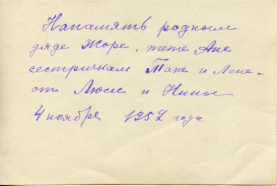 Напамять родным
дяде Жоре, тете Ане
сестричкам Тане и Лене -
от Люси и Нины
4 ноября 1957 года